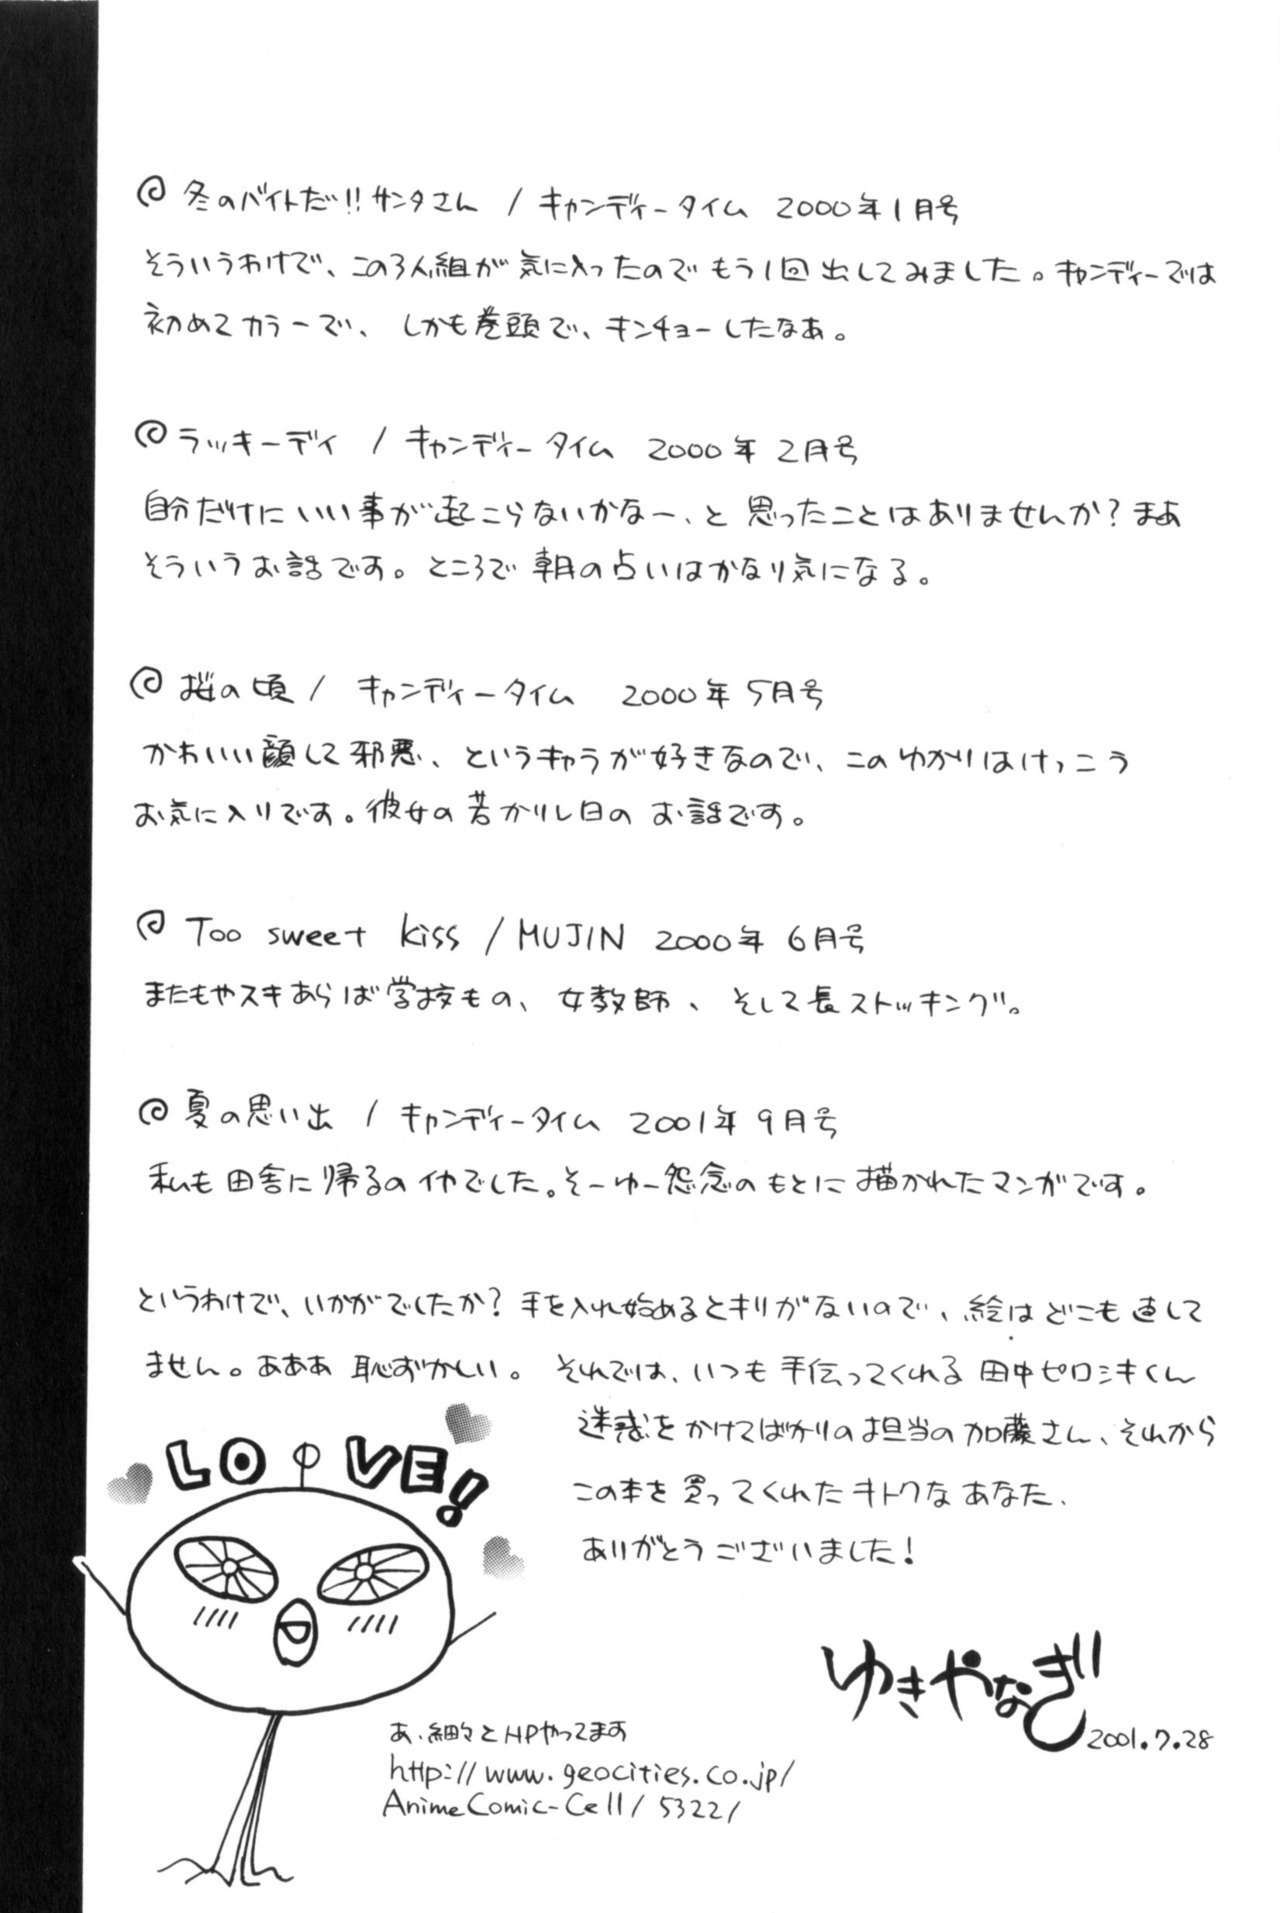 冬のバイトだ!!サンタさん / キャンディータイム 2000年1月号
そういうわけで、この3人組が気に入ったのでもう1回出してみました。キャンディーでは
初めてカラーで、しかも巻頭で、キンチョーしたなあ。
ラッキーデイ / キャンディータイム 2000年2月号
自分だけにいい事が起こらないかなー、と思ったことはありませんか?まあ
そういうお話です。ところで朝の占いはかなり気になる。
桜の頃 / キャンディータイム 2000年5月号
かわいい顔して邪悪、というキャラが好きなので、このゆかりはけっこう
お気に入りです。彼女の若かりし日のお話です。
Too sweet kiss / MUJIN 2000年6月号
またもやスキあらば学校もの、女教師、そして長ストッキング。
夏の思い出 / キャンディータイム 2001年9月号
私も田舎に帰るのイヤでした。そーゆー怨念のもとに描かれたマンガです。
というわけで、いかがでしたか?手を入れ始めるとキリがないので、絵はどこも直して
ません。あああ恥ずかしい。それでは、いつも手伝ってくれる田中ピロシキくん
迷惑をかけてばかりの担当の加藤さん、それから
この本を買ってくれたキトクなあなた、
ありがとうございました!
LOVE!
ゆきやなぎ
2001.7.28
あ、細々とHPやってます
http://www.geocities.co.jp/
AnimeComic-Cell/5322/